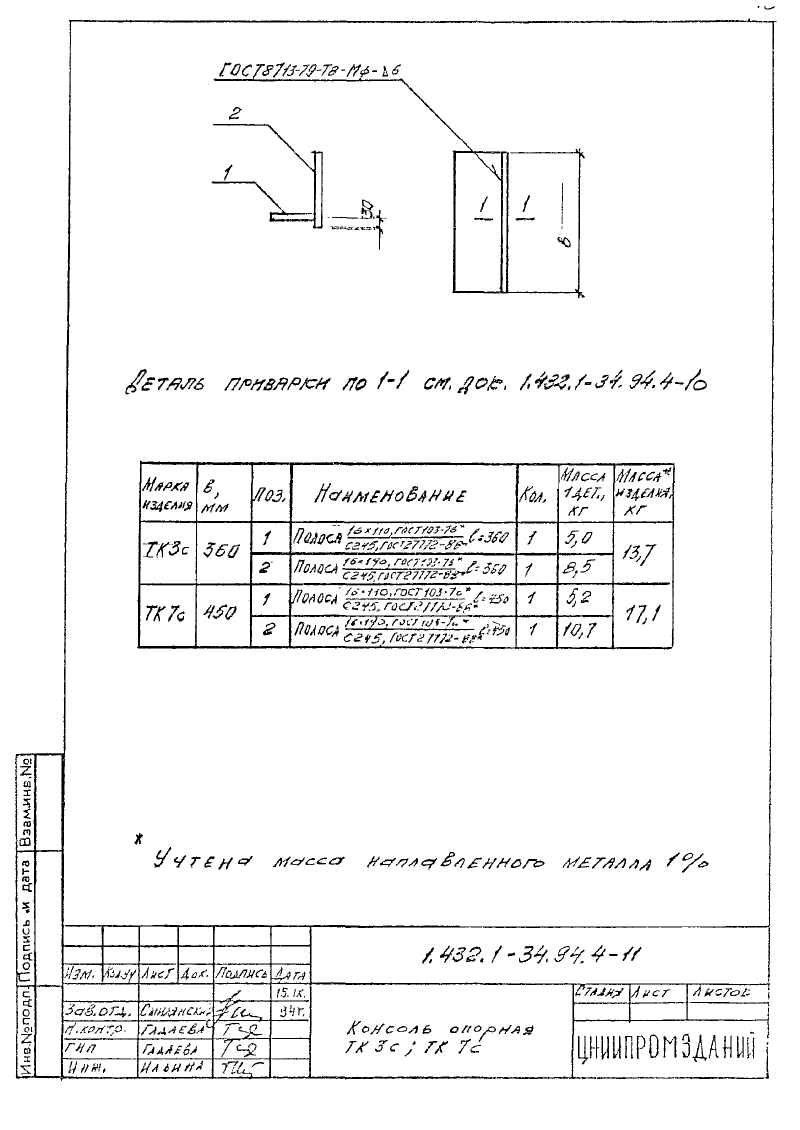 ГОСТ8713-79-Т8-Мф-Δ6
2
1
30
1 1
В
Деталь приварки по 1-1 см. док. 1.432.1-34.94.4-10
Марка изделия
В, мм
Поз.
Наименование
Кол.
Масса 1 дет., кг
Масса* изделия, кг
ТК3с 360
1 Полоса 16×110, ГОСТ103-76* / С245, ГОСТ27772-88 ℓ=360 1 5,0
13,7
2 Полоса 16×190, ГОСТ103-76* / С245, ГОСТ27772-88* ℓ=360 1 8,5
ТК7с 450
1 Полоса 16×110, ГОСТ103-76* / С245, ГОСТ27772-88* ℓ=450 1 6,2
17,1
2 Полоса 16×190, ГОСТ103-76* / С245, ГОСТ27772-88* ℓ=450 1 10,7
* Учтена масса наплавленного металла 1%
Взам.инв.№
Подпись и дата
Инв.№подл.
1.432.1-34.94.4-11
Изм. Кол.уч Лист Док. Подпись Дата
15.IX.
94г.
Зав.отд.
Н.контр. Гадаева
ГИП Гадаева
Инж. Ильина
Консоль опорная
ТК 3с; ТК 7с
Стадия Лист Листов
ЦНИИПРОМЗДАНИЙ